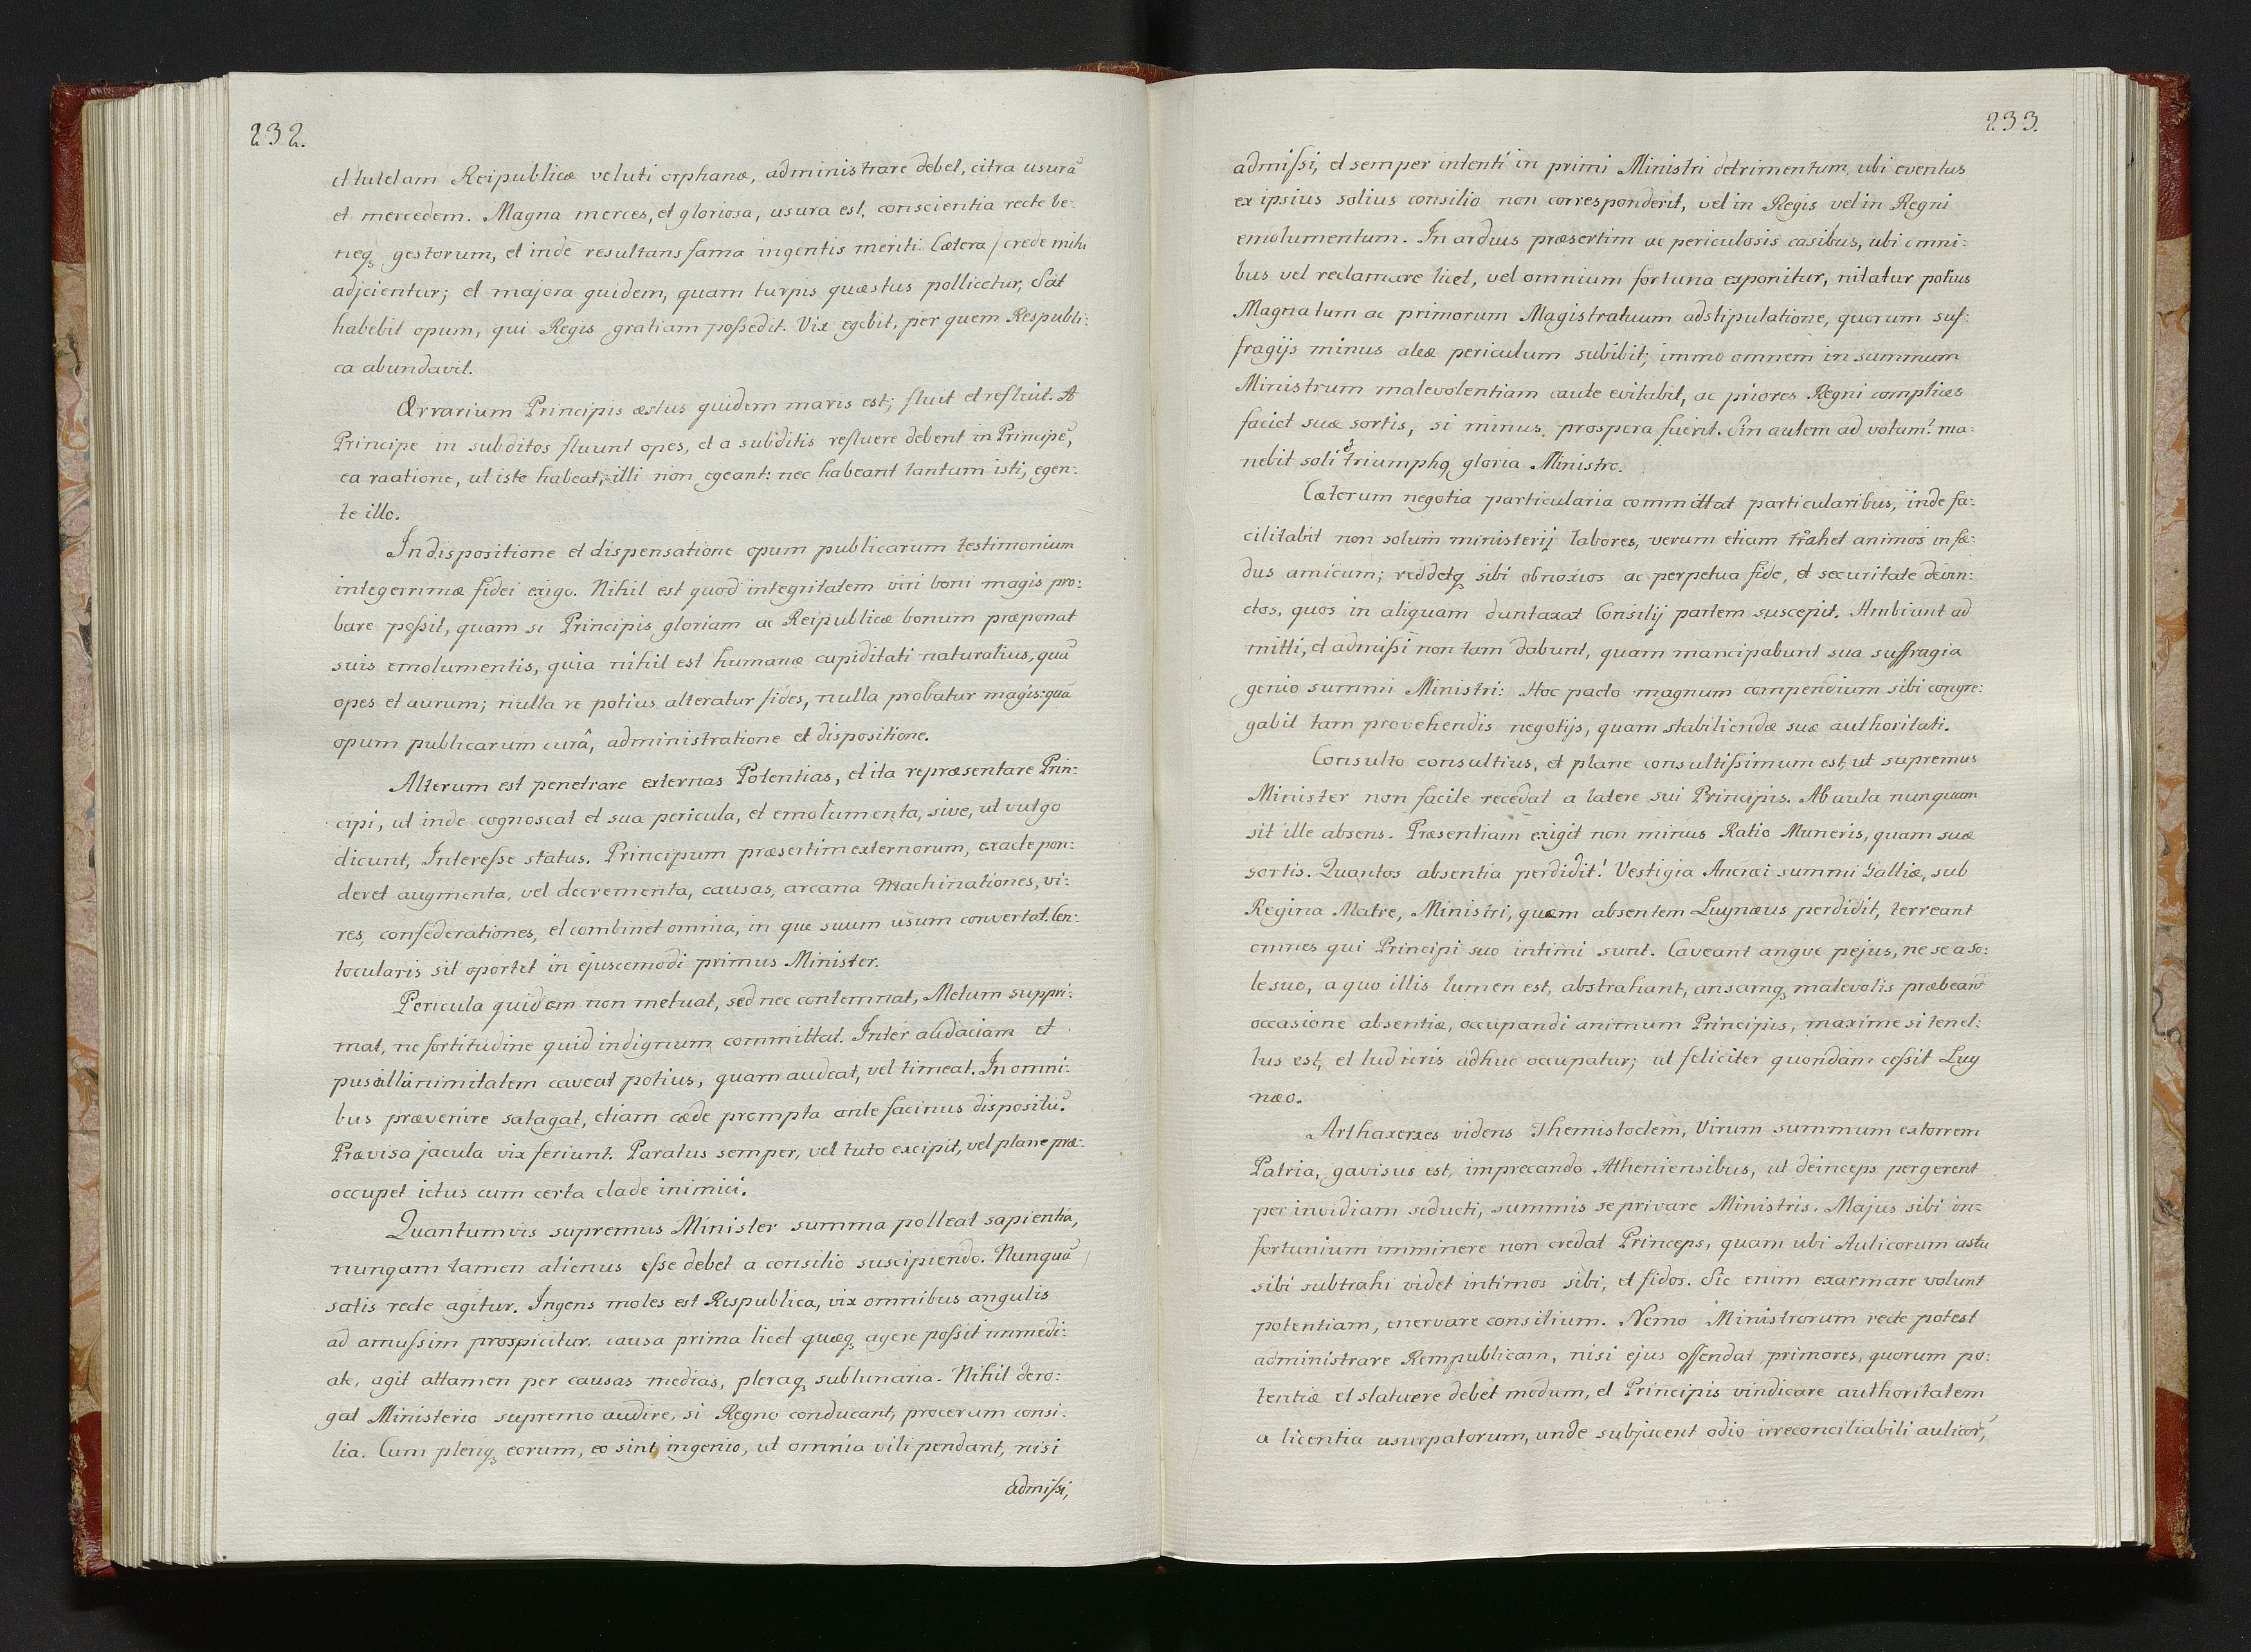 232.
et tutelam Reipublicæ veluti orphanæ, administrare debet, citra usurã
et mercedem. Magna merces, et gloriosa, usura est, conscientia recte be-
neq₃ gestorum, et inde resultans fama ingentis meriti. Cætera / crede mihi
adjicientur; et majora quidem, quam turpis quæstus pollicetur, Sat
habebit opum, qui Regis gratiam possedit. Vix egebit, per quem Respubli-
ca abundavit.
Ærrarium Principis æstus quidem maris est; fluit et refluit. A
Principe in subditos fluunt opes, et a subditis refluere debent in Principẽ,
ea raatione, ut iste habeat, illi non egeant: nec habeant tantum isti, egen-
te illo.
In dispositione et dispensatione opum publicarum testimonium
integerrimæ fidei exigo. Nihil est quod integritatem viri boni magis pro-
bare possit, quam si Principis gloriam ac Reipublicæ bonum præponat
suis emolumentis, quia nihil est humanæ cupiditati naturalius, quã
opes et aurum; nulla re potius alteratur fides, nulla probatur magis: quã
opum publicarum curâ, administratione et dispositione.
Alterum est penetrare externas Potentias, et ita repræsentare Prin-
cipi, ut inde cognoscat et sua pericula, et emolumenta, sive, ut vulgo
dicunt, Interesse status. Principum præsertim externorum, exacte pon-
deret augmenta, vel decrementa, causas, arcana Machinationes, vi-
res, confæderationes, et combinet omnia, in que suum usum convertat. Cen-
tocularis sit oportet in ejuscemodi primus Minister.
Pericula quidem non metuat, sed nec contemnat, Metum suppri-
mat, ne fortitudine quid indignum committat. Inter audaciam et
pusillanimitatem caveat potius, quam audeat, vel timeat. In omni-
bus prævenire satagat, etiam cæde prompta ante facinus dispositũ.
Prævisa jacula vix feriunt. Paratus semper, vel tuto excipit, vel plane præ-
occupet ictus cum certa clade inimici.
Quantumvis supremus Minister summa polleat sapientia,
nunqam tamen alienus esse debet a consilio suscipiendo. Nunquã
satis recte agitur. Ingens moles est Respublica, vix omnibus angulis
ad amussim prospicitur. causa prima licet quæq₃ agere possit immedi-
ate, agit attamen per causas medias, pleraq₃ sublunaria. Nihil dero-
gat Ministerio supremo audire, si Regno conducant, procerum consi-
lia. Cum pleriq₃ eorum, eo sint ingenio, ut omnia vili pendant, nisi
admissi,
233.
admissi, et semper intenti in primi Ministri detrimentum, ubi eventus
ex ipsius solius consilio non corresponderit, vel in Regis vel in Regni
emolumentum. In arduis præsertim ac periculosis casibus, ubi omni-
bus vel reclamare licet, vel omnium fortuna exponitur, nitatur potius
Magnatum ac primorum Magistratuum adstipulatione, quorum suf-
fragijs minus aleæ periculum subibit; immo omnem in summum
Ministrum malevolentiam caute evitabit, ac priores Regni complices
faciet suæ sortis, si minus prospera fuerit. Sin autem ad votum? ma-
nebit soli et triumphq gloria Ministro.
Cæterum negotia particularia committat particularibus, inde fa-
cilitabit non solum ministerij labores, verum etiam trahet animos in fæ-
dus amicum; reddetq₃ sibi obnoxios ac perpetua fide, et securitate devin-
ctos, quos in aliquam duntaxat Consilij partem suscepit. Ambiunt ad
mitti, et admissi non tam dabunt, quam mancipabunt sua suffragia
genio summi Ministri: Hoc pacto magnum compendium sibi congre-
gabit tam provehendis negotijs, quam stabiliendæ suæ authoritati.
Consulto consultius, et plane consultissimum est, ut supremus
Minister non facile recedat a latere sui Principis. Ab aula nunquam
sit ille absens. Præsentiam exigit non minus Ratio Muneris, quam suæ
sortis. Quantos absentia perdidit! Vestigia Ancræi summi Galliæ, sub
Regina Matre, Ministri, quem absentem Luynæus perdidit, terreant
omnes qui Principi suo intimi sunt. Caveant angve pejus, ne se a so-
le suo, a quo illis lumen est, abstrahant, ansamq₃ malevolis præbeant
occasione absentiæ, occupandi animum Principis, maxime si tenel-
lus est, et ludicris adhuc occupatur; ut feliciter quondam cessit Luy
næo.
Arthaxerxes videns Themistoclem, Virum summum extorrem
Patria, gavisus est, imprecando Atheniensibus, ut deinceps pergerent
per invidiam seducti, summis se privare Ministris. Majus sibi in-
fortunium imminere non credat Princeps, quam ubi Aulicorum astu
sibi subtrahi videt intimos sibi, et fidos. Sic enim exarmare volunt
potentiam, enervare consilium. Nemo Ministrorum recte potest
administrare Rempublicam, nisi ejus offendat primores, quorum po-
tentiæ et statuere debet modum, et Principis vindicare authoritatem
a licentia usurpatorum, unde subjacent odio irreconciliabili aulicor̃,